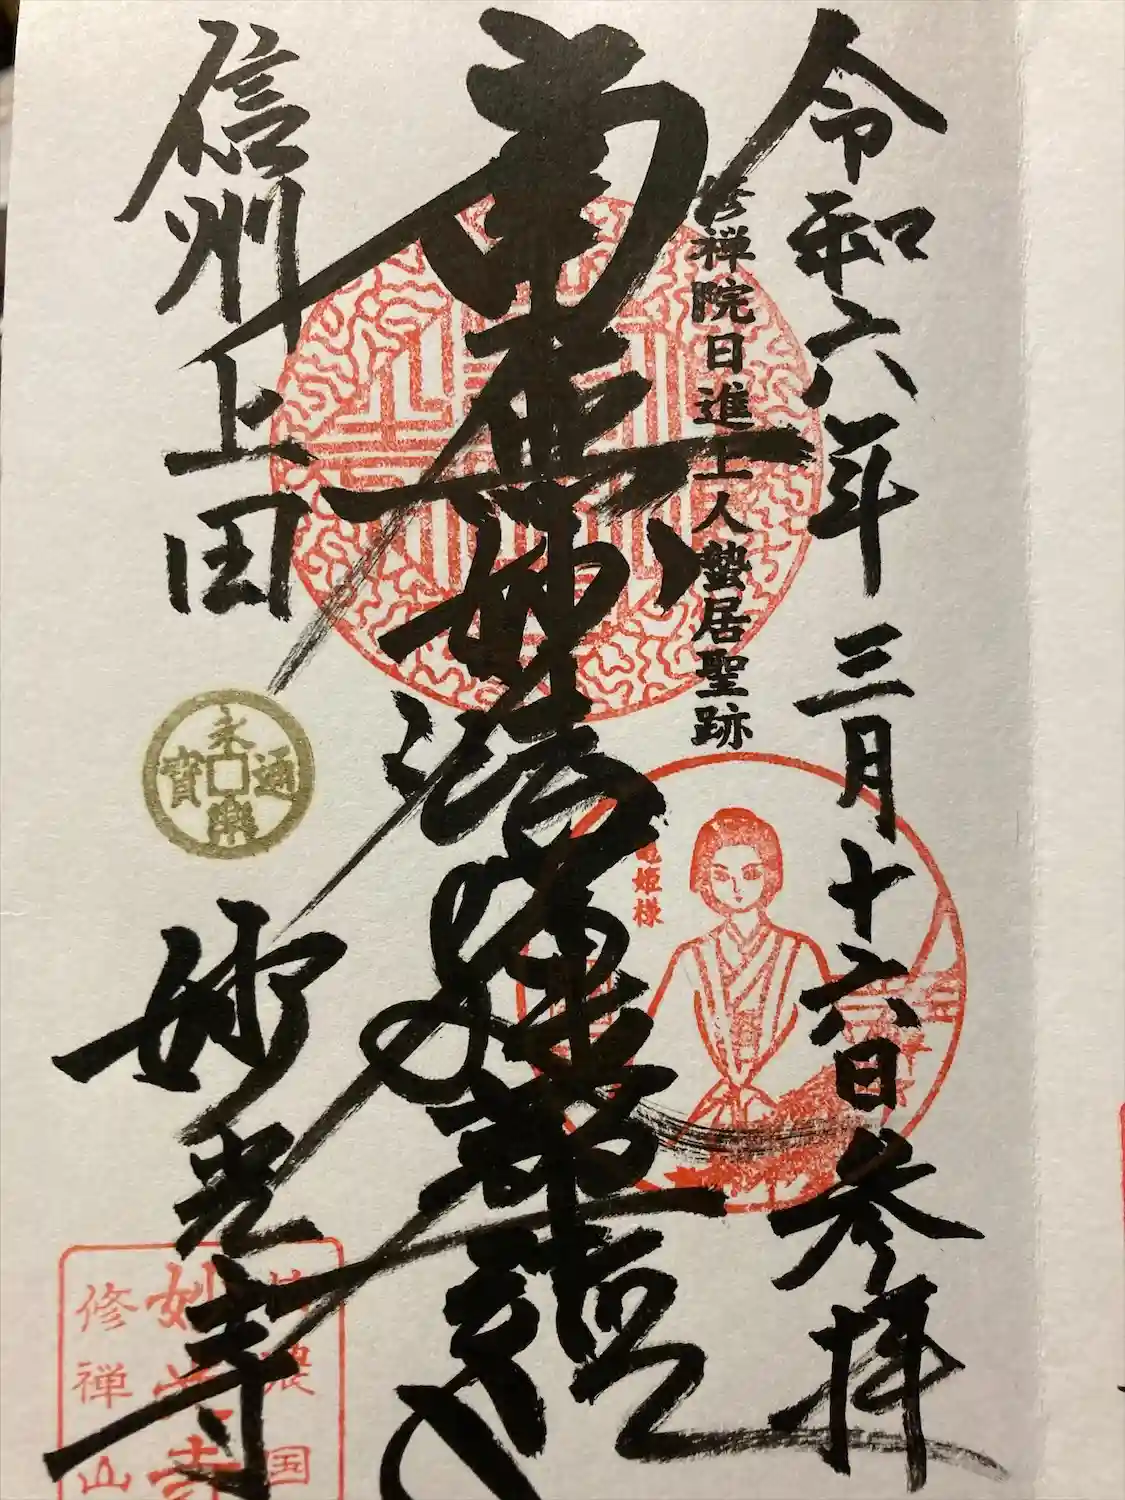 令和六年三月十六日参拝
修禅院日進上人蟄居聖跡
南無妙法蓮華経
竜姫様
信州上田
永楽通寳
妙光寺
信濃国
妙光寺
修禅山